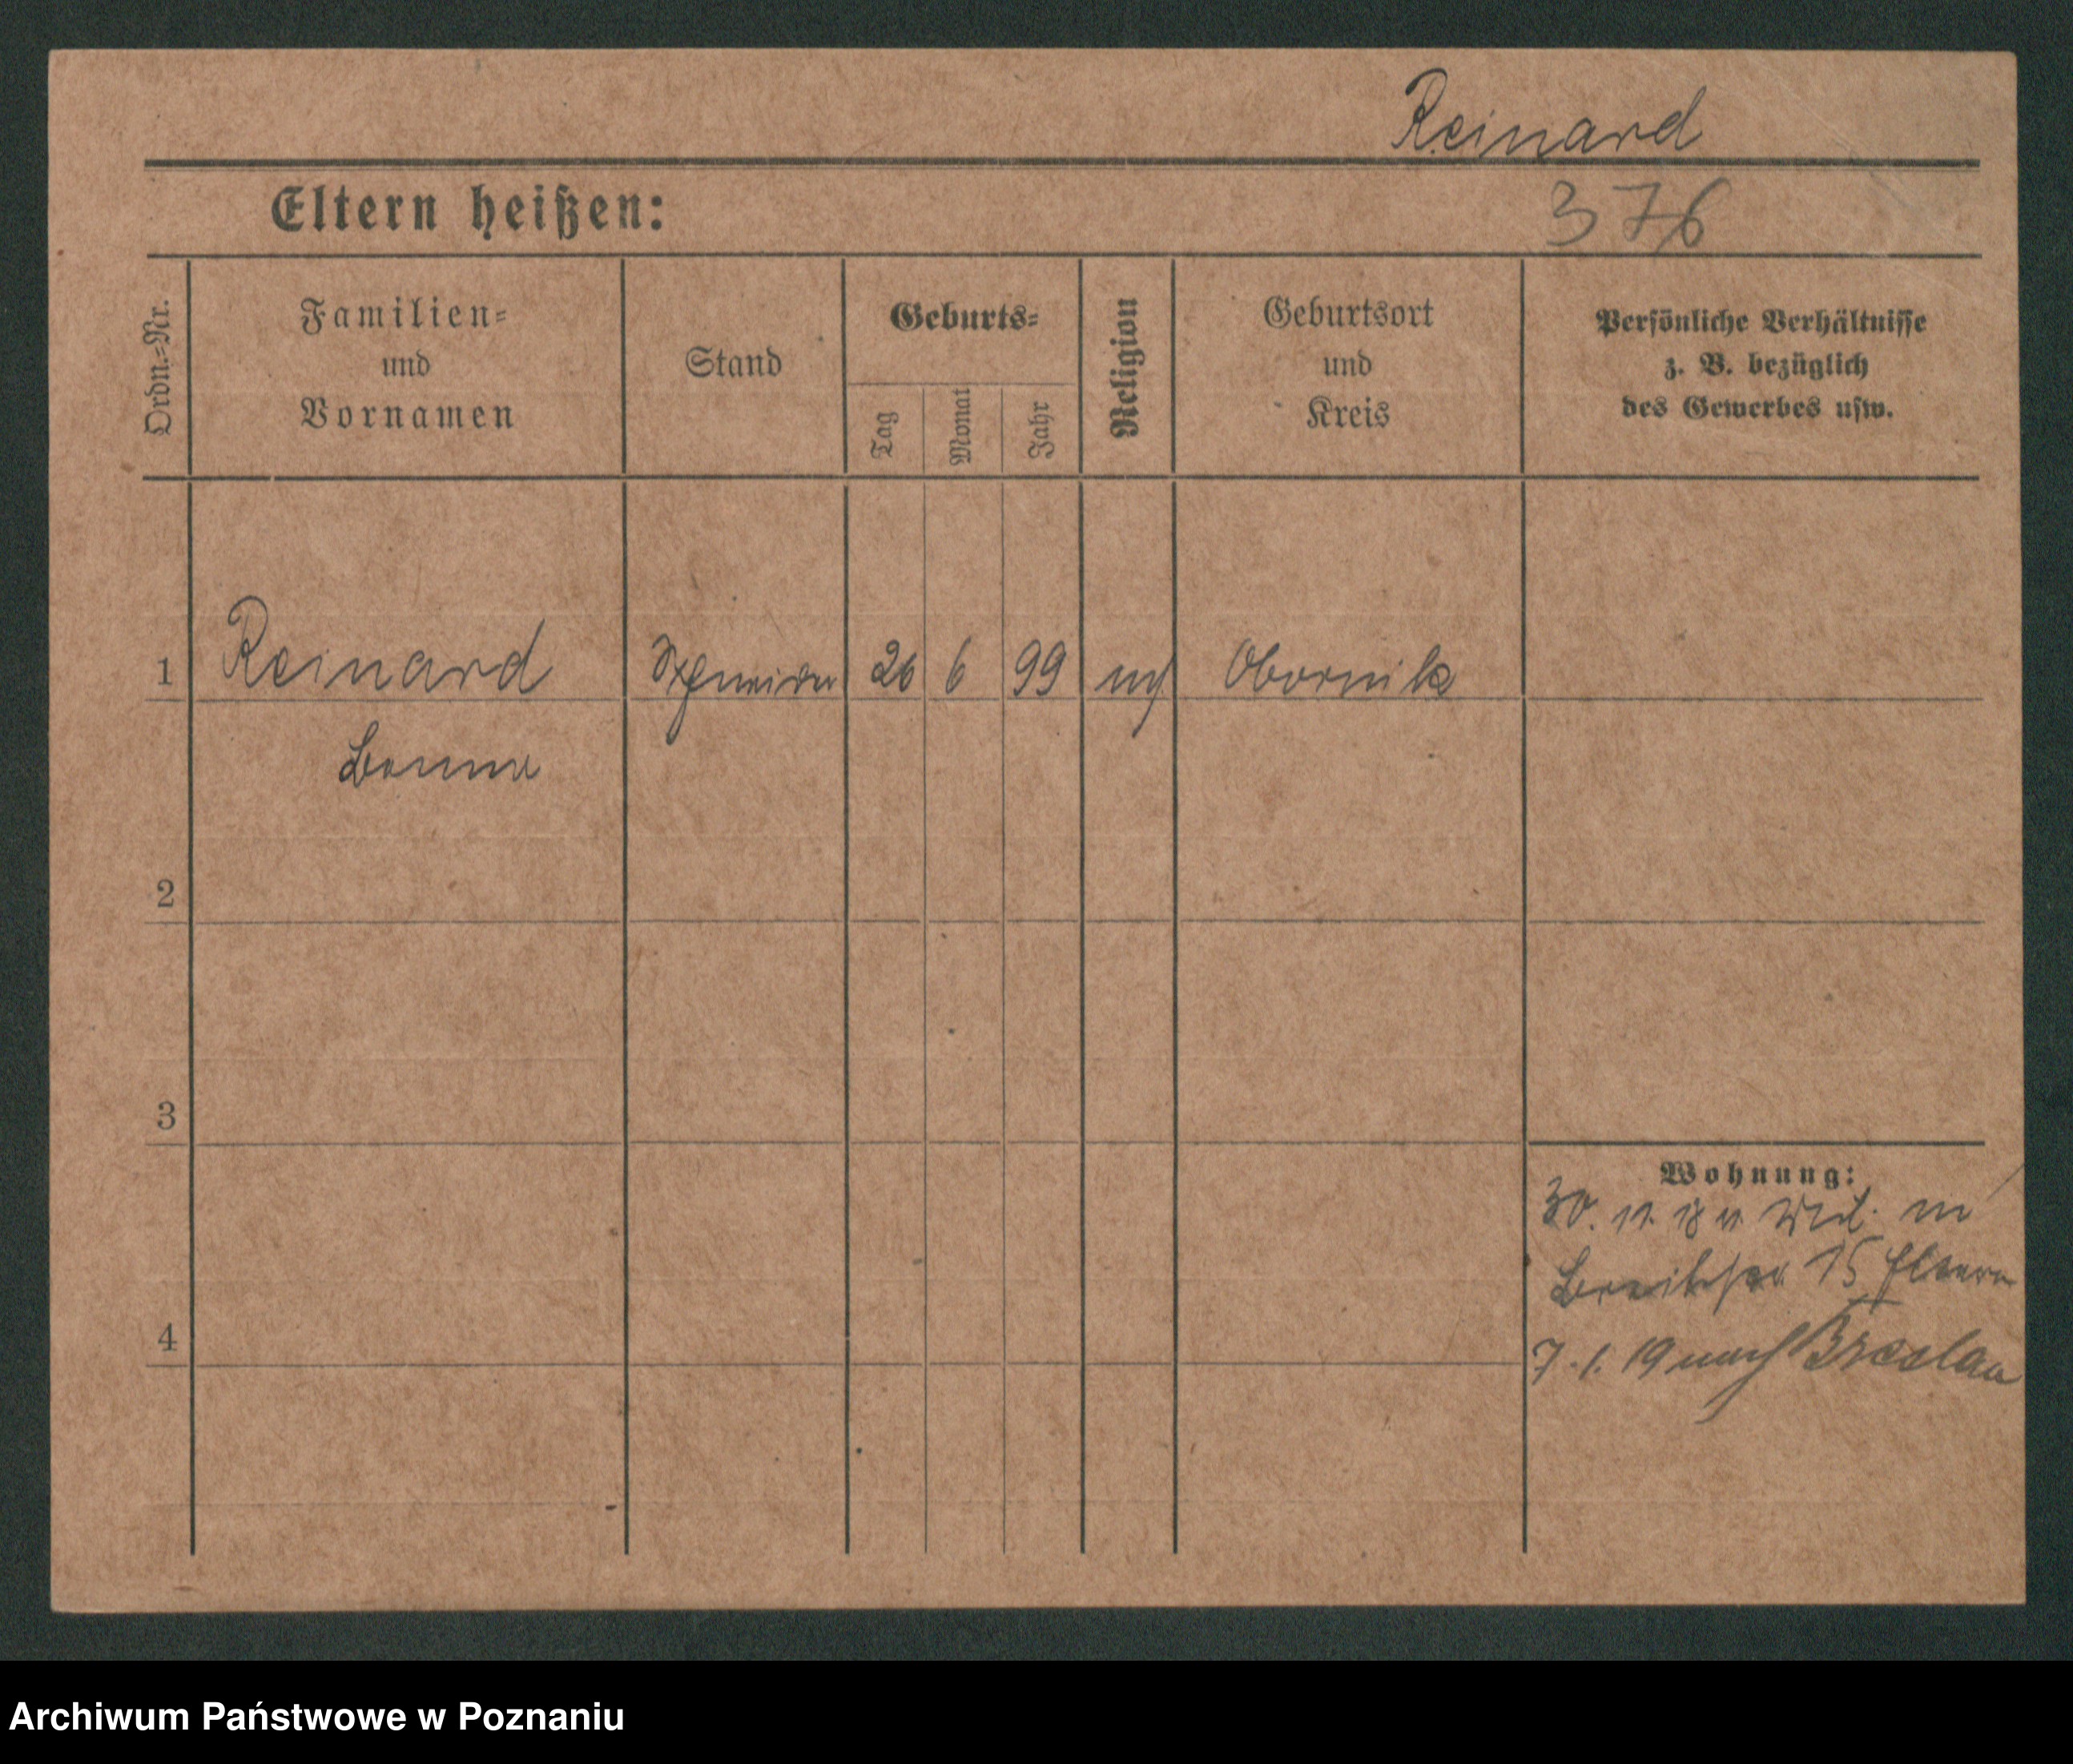 Reinard
Eltern heißen:
376
Ordn.=Nr.
Familien=
und
Vornamen
Stand
Geburts=
Tag
Monat
Jahr
Religion
Geburtsort
und
Kreis
Persönliche Verhältnisse
z. B. bezüglich
des Gewerbes usw.
1 Reinard 26 6 99 Obornik
2
3
Wohnung:
30. 11. 18 v.
15
4
7. 1. 19 nach Breslau
Archiwum Państwowe w Poznaniu